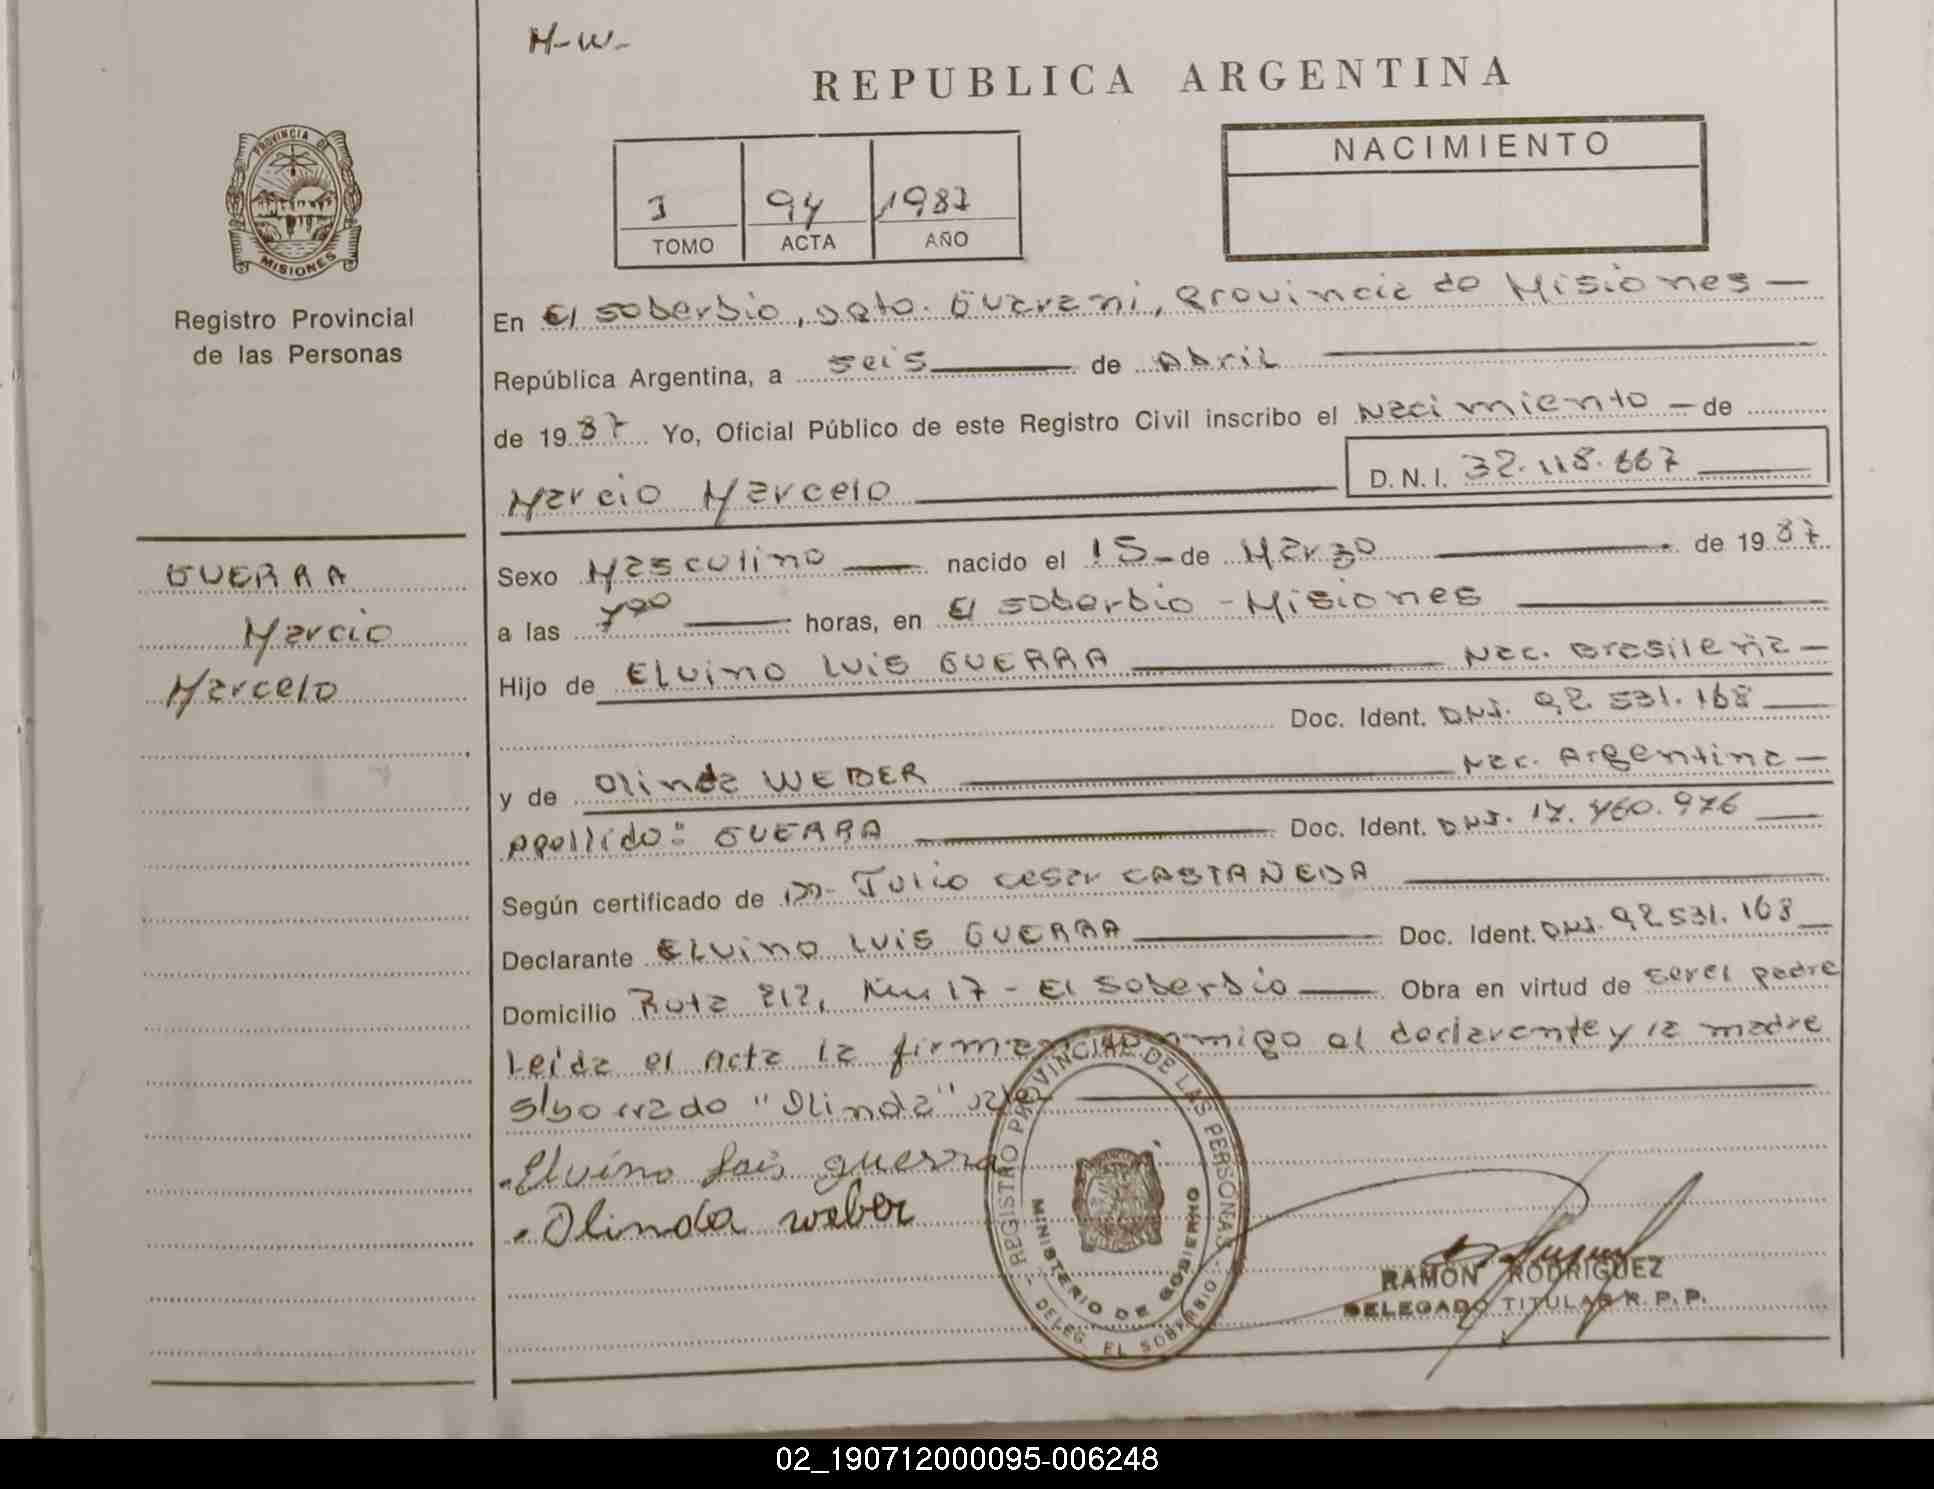 H-W-
REPUBLICA ARGENTINA
PROVINCIA DE
MISIONES
Registro Provincial
de las Personas
I 94 1987
TOMO ACTA AÑO
NACIMIENTO
En El Soberbio, Dpto. Guarani, Provincia de Misiones
República Argentina, a seis de Abril
de 1987 Yo, Oficial Público de este Registro Civil inscribo el Nacimiento - de
Marcio Marcelo D.N.I. 32.118.667
GUERRA
Marcio
Marcelo
Sexo Masculino nacido el 15 - de Marzo de 1987
a las horas, en El Soberbio - Misiones
Hijo de Elvino Luis GUERRA Nac. Brasileria
Doc. Ident. DNI. 92.531.168
y de Olinda WEBER Nac. Argentina
Apellido: GUERRA Doc. Ident. DNI. 17.460.976
Según certificado de Dr. Julio Cesar CASTAÑEDA
Declarante Elvino Luis GUERRA Doc. Ident. DNI. 92531.168
Domicilio Ruta 212, Km 17 - El Soberbio Obra en virtud de ser el padre
Leida el Acta la firman conmigo el declarante y la madre
s/borrado "Olinda" vale
Elvino Luis guerra
Olinda weber
REGISTRO PROVINCIAL DE LAS PERSONAS
MINISTERIO DE GOBIERNO
DELEG. EL SOBERBIO
RAMON RODRIGUEZ
DELEGADO TITULAR R.P.P.
02_190712000095-006248